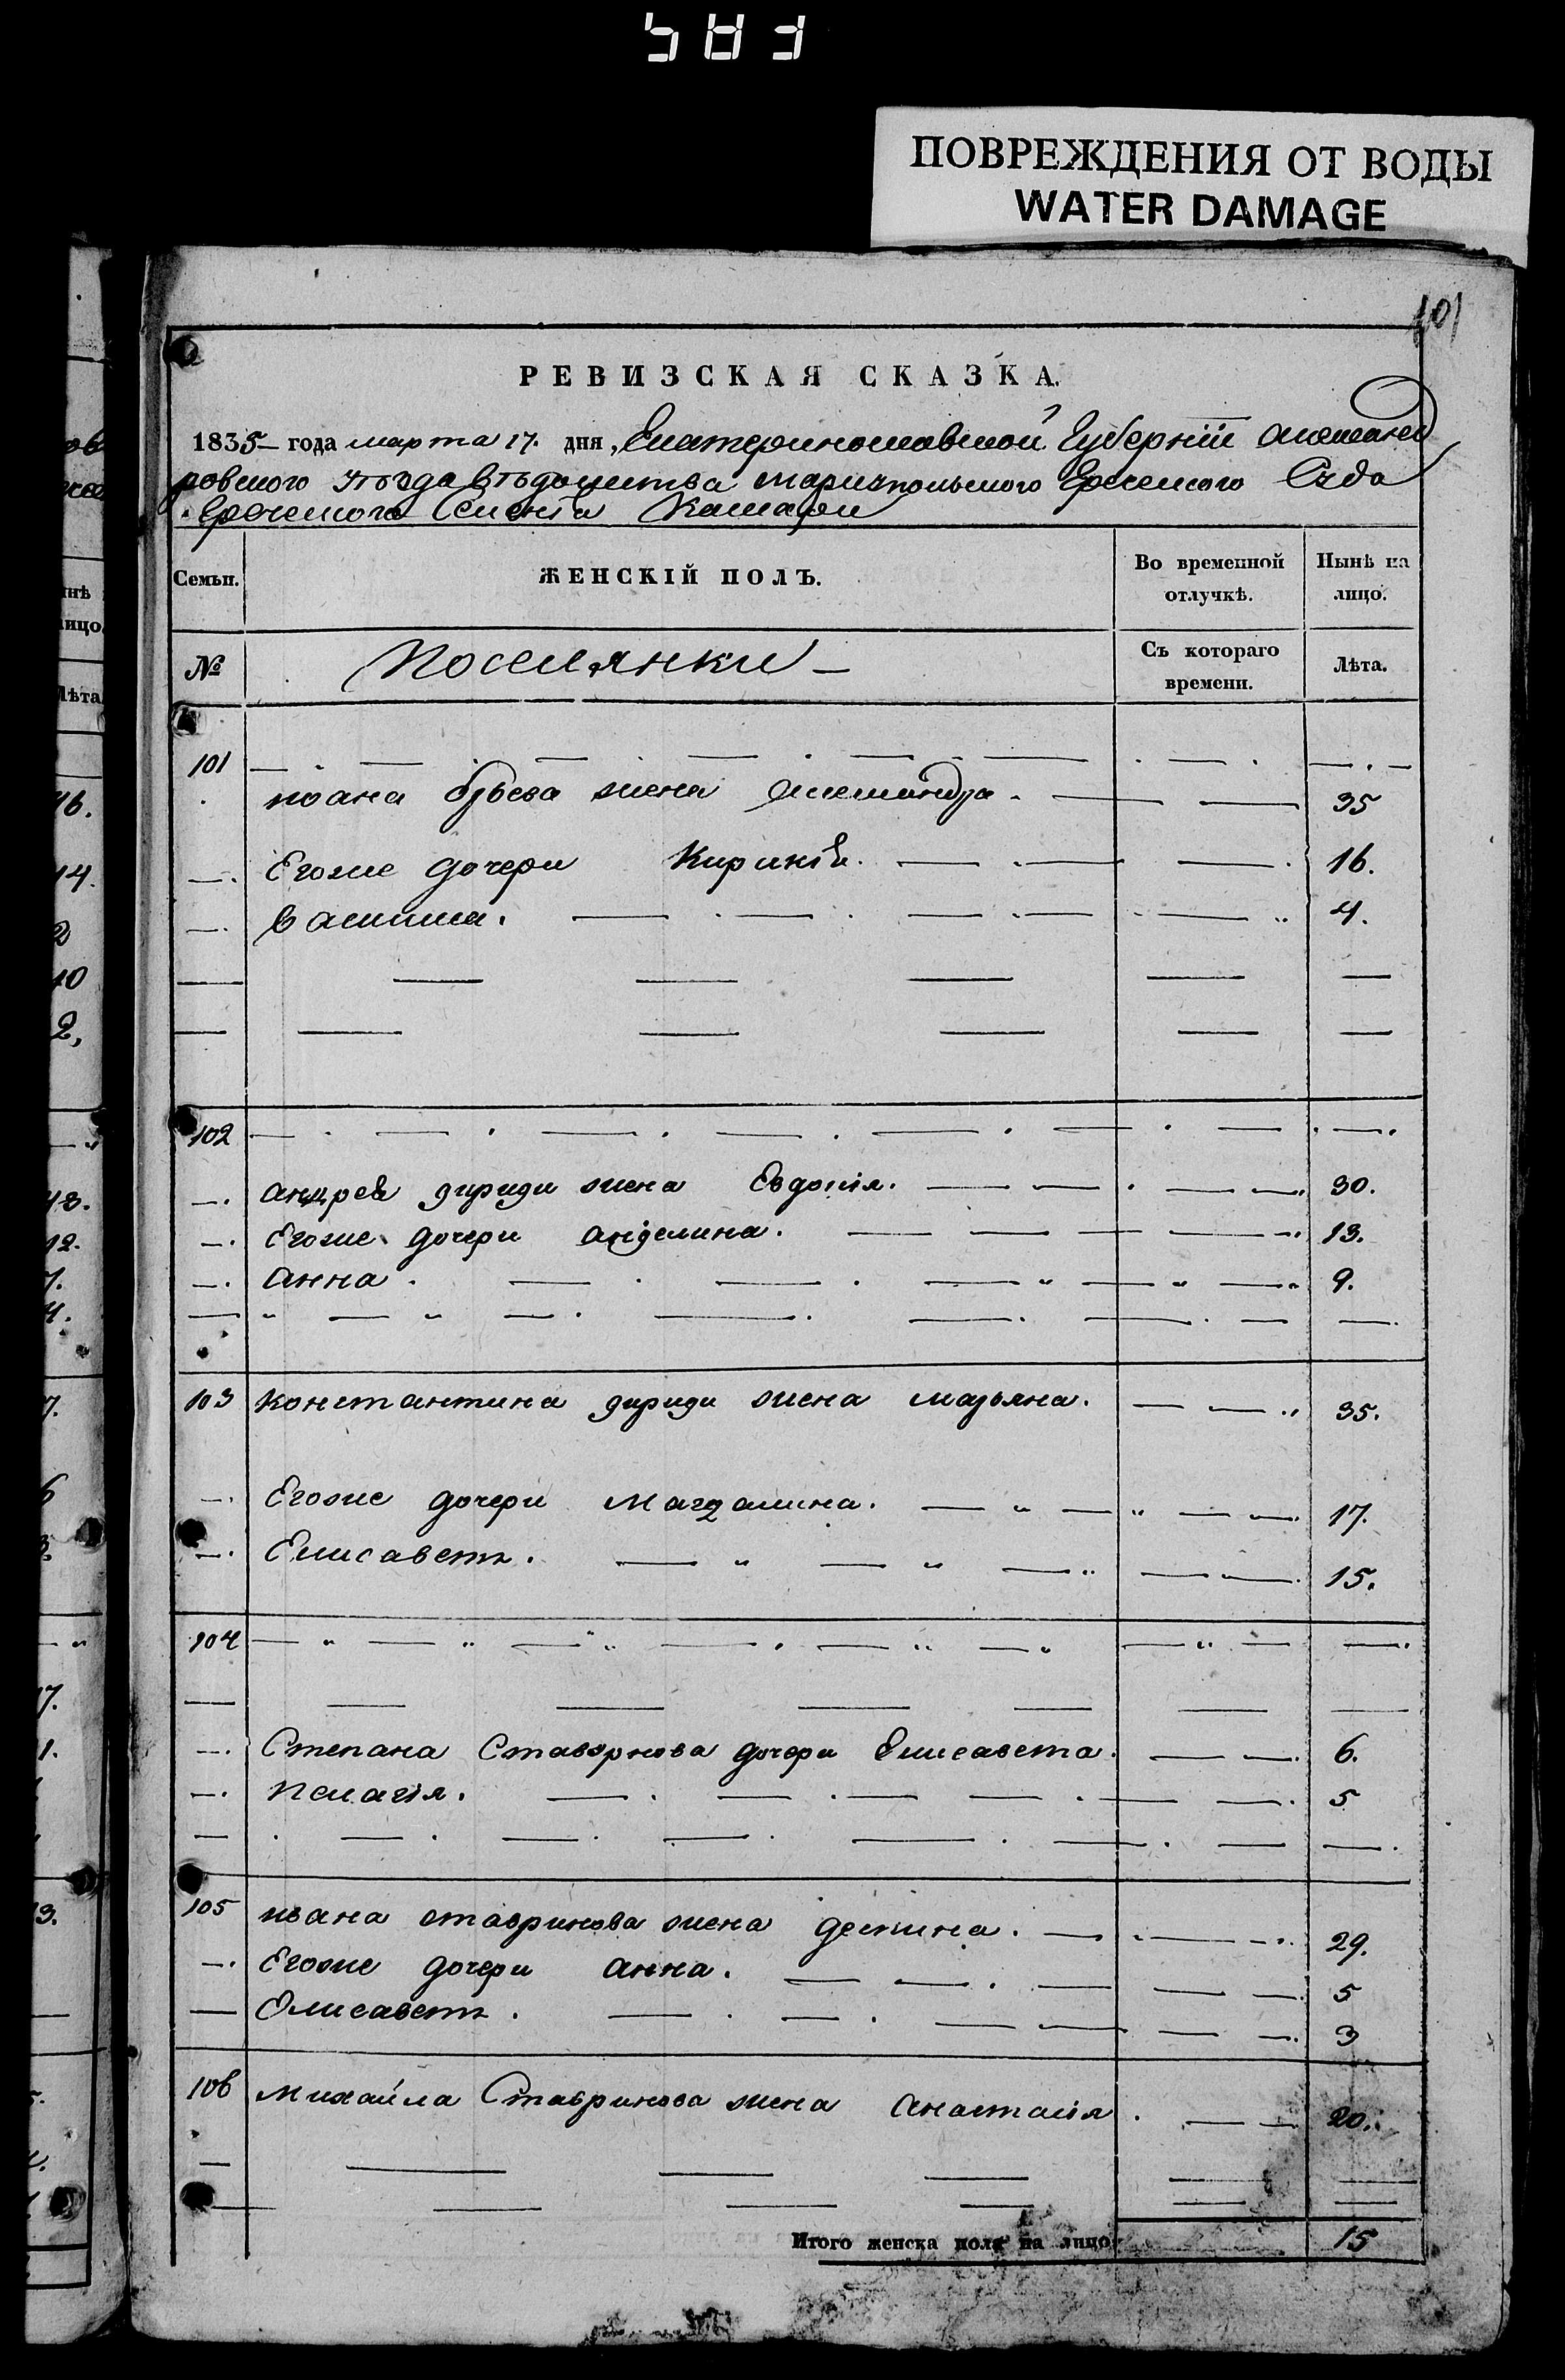 ПОВРЕЖДЕНИЯ ОТ ВОДЫ
WATER DAMAGE
101
РЕВИЗСКАЯ СКАЗКА.
1835 года марта 17. дня, Екатеринославской Губерніи Александ
ровского уѣзда вѣдомства мариупольского Греческого Суда
Греческого Селенія
Семьи. ЖЕНСКІЙ ПОЛЪ. Во временной отлучкѣ. Нынѣ на лицо.
№ Поселянки Съ котораго времени. Лѣта.
101
жена Александра. 35
Егоже дочери 16.
4.
102
андрея жена Евдокія. 30.
Егоже дочери 13.
анна. 9.
103 константина жена марьяна. 35.
Егоже дочери Магдалина. 17.
Елисаветъ. 15.
104
Степана Ставринова дочери Елисавета. 6.
Пелагія. 5
105 ивана ставринова жена деспина. 29.
Егоже дочери анна. 5
Елисаветъ. 3
106 Михайла Ставринова жена анастасія. 20.
Итого женска пола на лицо 15